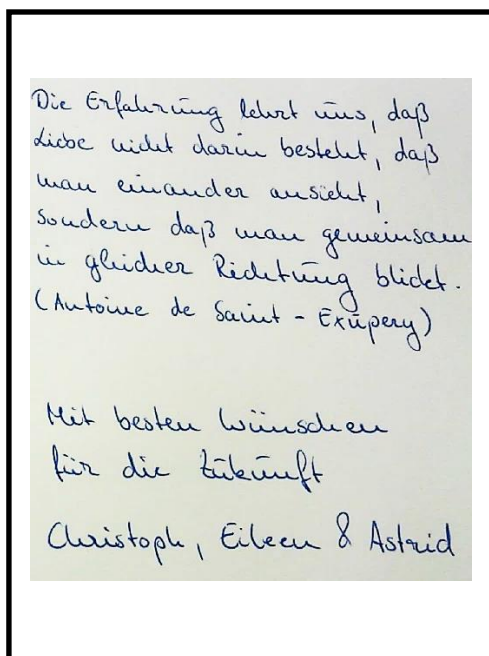 Die Erfahrung lehrt uns, daß
Liebe nicht darin besteht, daß
man einander ansieht,
sondern daß man gemeinsam
in gleicher Richtung blickt.
(Antoine de Saint - Exupery)
Mit besten Wünschen
für die Zukunft
Christoph, Eileen & Astrid